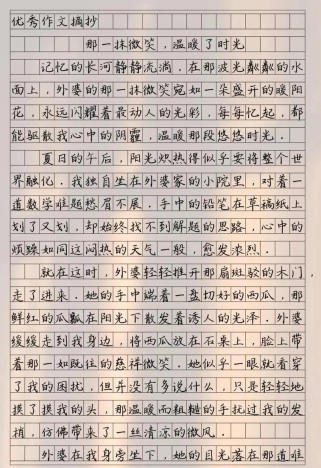 优秀作文摘抄
那一抹微笑，温暖了时光
记忆的长河静静流淌.在那波光粼粼的水
面上，外婆的那一抹微笑宛如一朵盛开的暖阳
花，永远闪耀着最动人的光彩，每每忆起，都
能驱散我心中的阴霾，温暖那段悠悠时光.
夏日的午后，阳光炽热得似乎要将整个世
界融化.我独自坐在外婆家的小院里，对着一
道数学难题愁眉不展.手中的铅笔在草稿纸上
划了又划，却始终找不到解题的思路，心中的
烦躁如同这闷热的天气一般，愈发浓烈.
就在这时，外婆轻轻推开那扇斑驳的木门，
走了进来.她的手中端着一盘切好的西瓜，那
鲜红的瓜瓤在阳光下散发着诱人的光泽.外婆
缓缓走到我身边，将西瓜放在石桌上，脸上带
着那一如既往的慈祥微笑.她似乎一眼就看穿
了我的困扰，但并没有多说什么，只是轻轻地
摸了摸我的头，那温暖而粗糙的手扰过我的发
梢，仿佛带来了一丝清凉的微风.
外婆在我身旁坐下，她的目光落在那道难